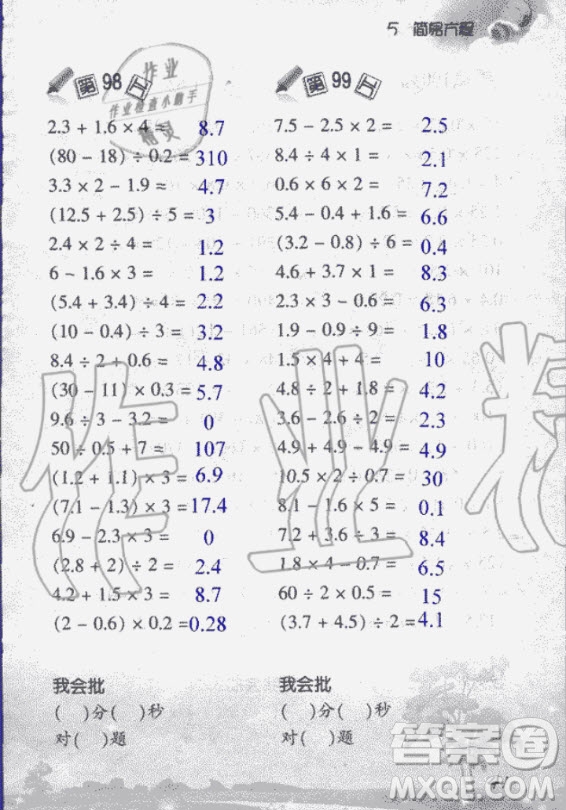 5 简易方程
第98日
2.3 + 1.6 × 4 = 8.7
(80 - 18) ÷ 0.2 = 310
3.3 × 2 - 1.9 = 4.7
(12.5 + 2.5) ÷ 5 = 3
2.4 × 2 ÷ 4 = 1.2
6 - 1.6 × 3 = 1.2
(5.4 + 3.4) ÷ 4 = 2.2
(10 - 0.4) ÷ 3 = 3.2
8.4 ÷ 2 + 0.6 = 4.8
(30 - 11) × 0.3 = 5.7
9.6 ÷ 3 - 3.2 = 0
50 ÷ 0.5 + 7 = 107
(1.2 + 1.1) × 3 = 6.9
(7.1 - 1.3) × 3 = 17.4
6.9 - 2.3 × 3 = 0
(2.8 + 2) ÷ 2 = 2.4
4.2 + 1.5 × 3 = 8.7
(2 - 0.6) × 0.2 = 0.28
我会批
( )分( )秒
对( )题
第99日
7.5 - 2.5 × 2 = 2.5
8.4 ÷ 4 × 1 = 2.1
0.6 × 6 × 2 = 7.2
5.4 - 0.4 + 1.6 = 6.6
(3.2 - 0.8) ÷ 6 = 0.4
4.6 + 3.7 × 1 = 8.3
2.3 × 3 - 0.6 = 6.3
1.9 - 0.9 ÷ 9 = 1.8
1.5 × 4 + 4 = 10
4.8 ÷ 2 + 1.8 = 4.2
3.6 - 2.6 ÷ 2 = 2.3
4.9 + 4.9 - 4.9 = 4.9
10.5 × 2 ÷ 0.7 = 30
8.1 - 1.6 × 5 = 0.1
7.2 + 3.6 ÷ 3 = 8.4
1.8 × 4 - 0.7 = 6.5
60 ÷ 2 × 0.5 = 15
(3.7 + 4.5) ÷ 2 = 4.1
我会批
( )分( )秒
对( )题
作业
作业检查小助手
精灵
作业精
答案圈
MXQE.COM